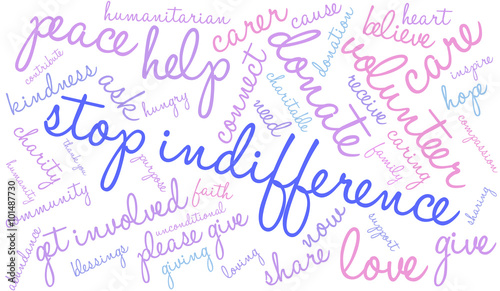 humanitarian
carer
cause
heart
peace
help
donation
believe
care
contribute
kindness
ask
hungry
connect
donate
volunteer
inspire
hope
stop indifference
need
charitable
receive
caring
family
compassion
charity
thank you
purpose
humanity
community
faith
abundance
get involved
unconditional
please give
blessings
giving
loving
now
share
support
love
give
sharing
Adobe Stock | #101487730
Adobe Stock